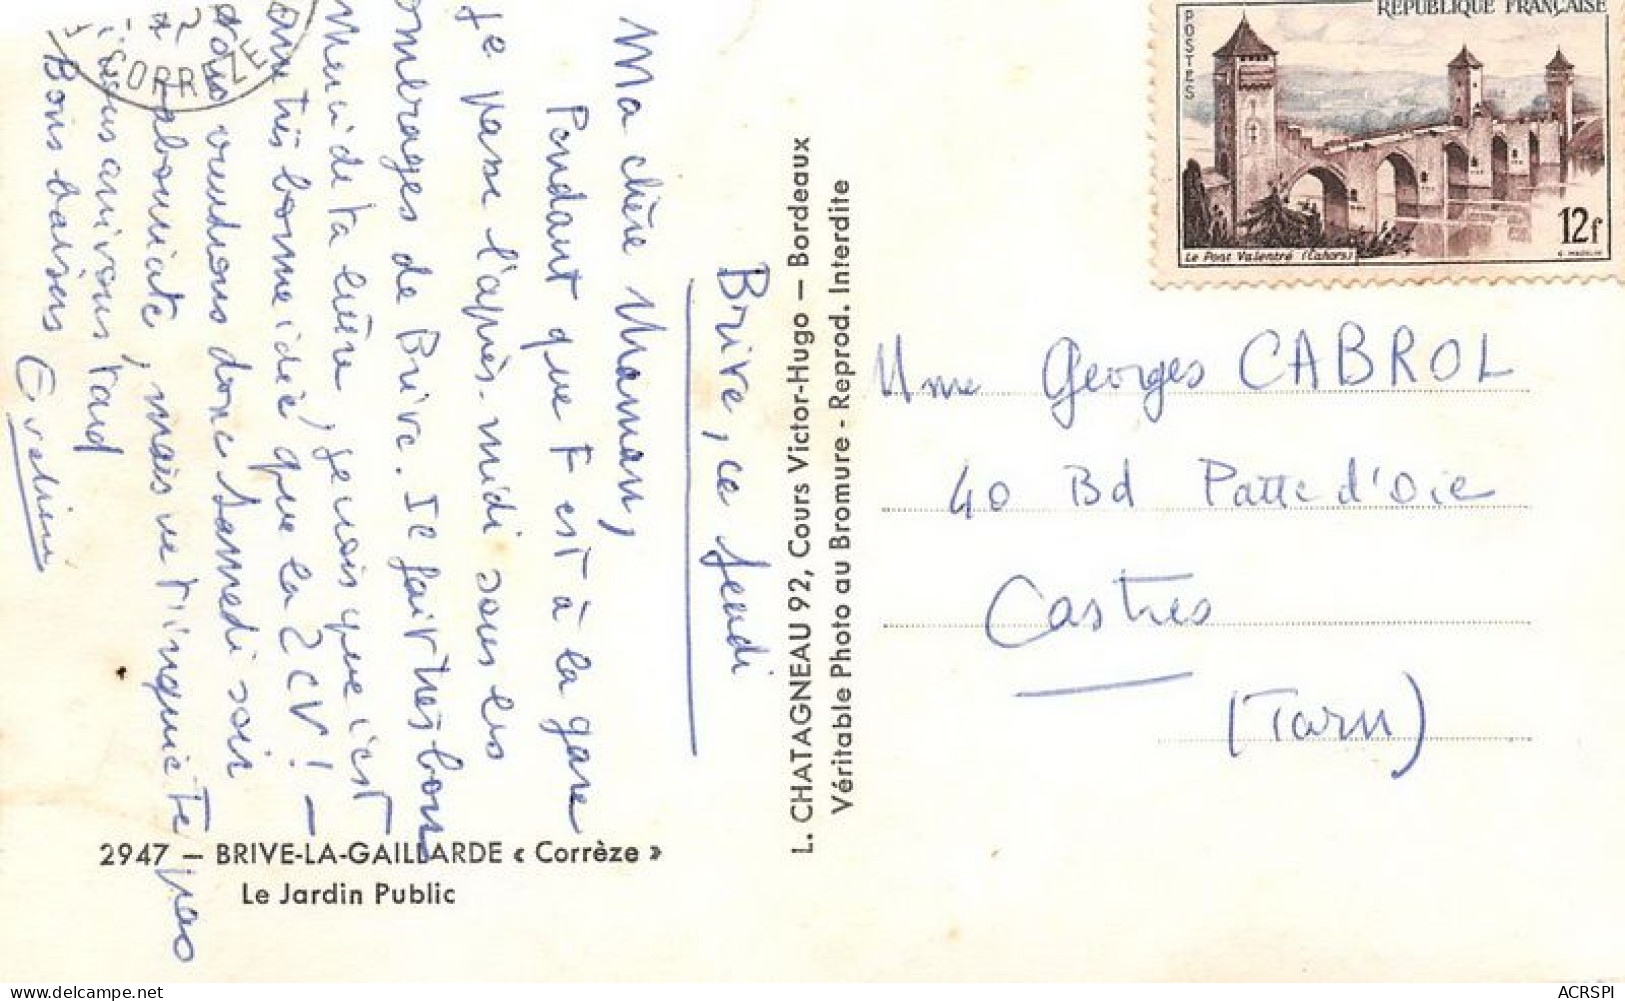 Brive, ce jeudi
Ma chère Maman,
Pendant que F est à la gare
je passe l'après-midi sous les
ombrages de Brive. Il fait très bon
Merci de ta lettre, je vois que c'est
une très bonne idée que la 2CV! —
Nous viendrons donc Samedi soir
mais ne t'inquiète pas
si nous arrivons tard
Bons baisers
CORREZE
2947 — BRIVE-LA-GAILLARDE « Corrèze »
Le Jardin Public
L. CHATAGNEAU 92, Cours Victor-Hugo — Bordeaux
Véritable Photo au Bromure - Reprod. Interdite
REPUBLIQUE FRANÇAISE
POSTES
12f
Le Pont Valentré (Cahors)
Mme Georges CABROL
40 Bd Patte d'Oie
Castres
(Tarn)
ACRSPI